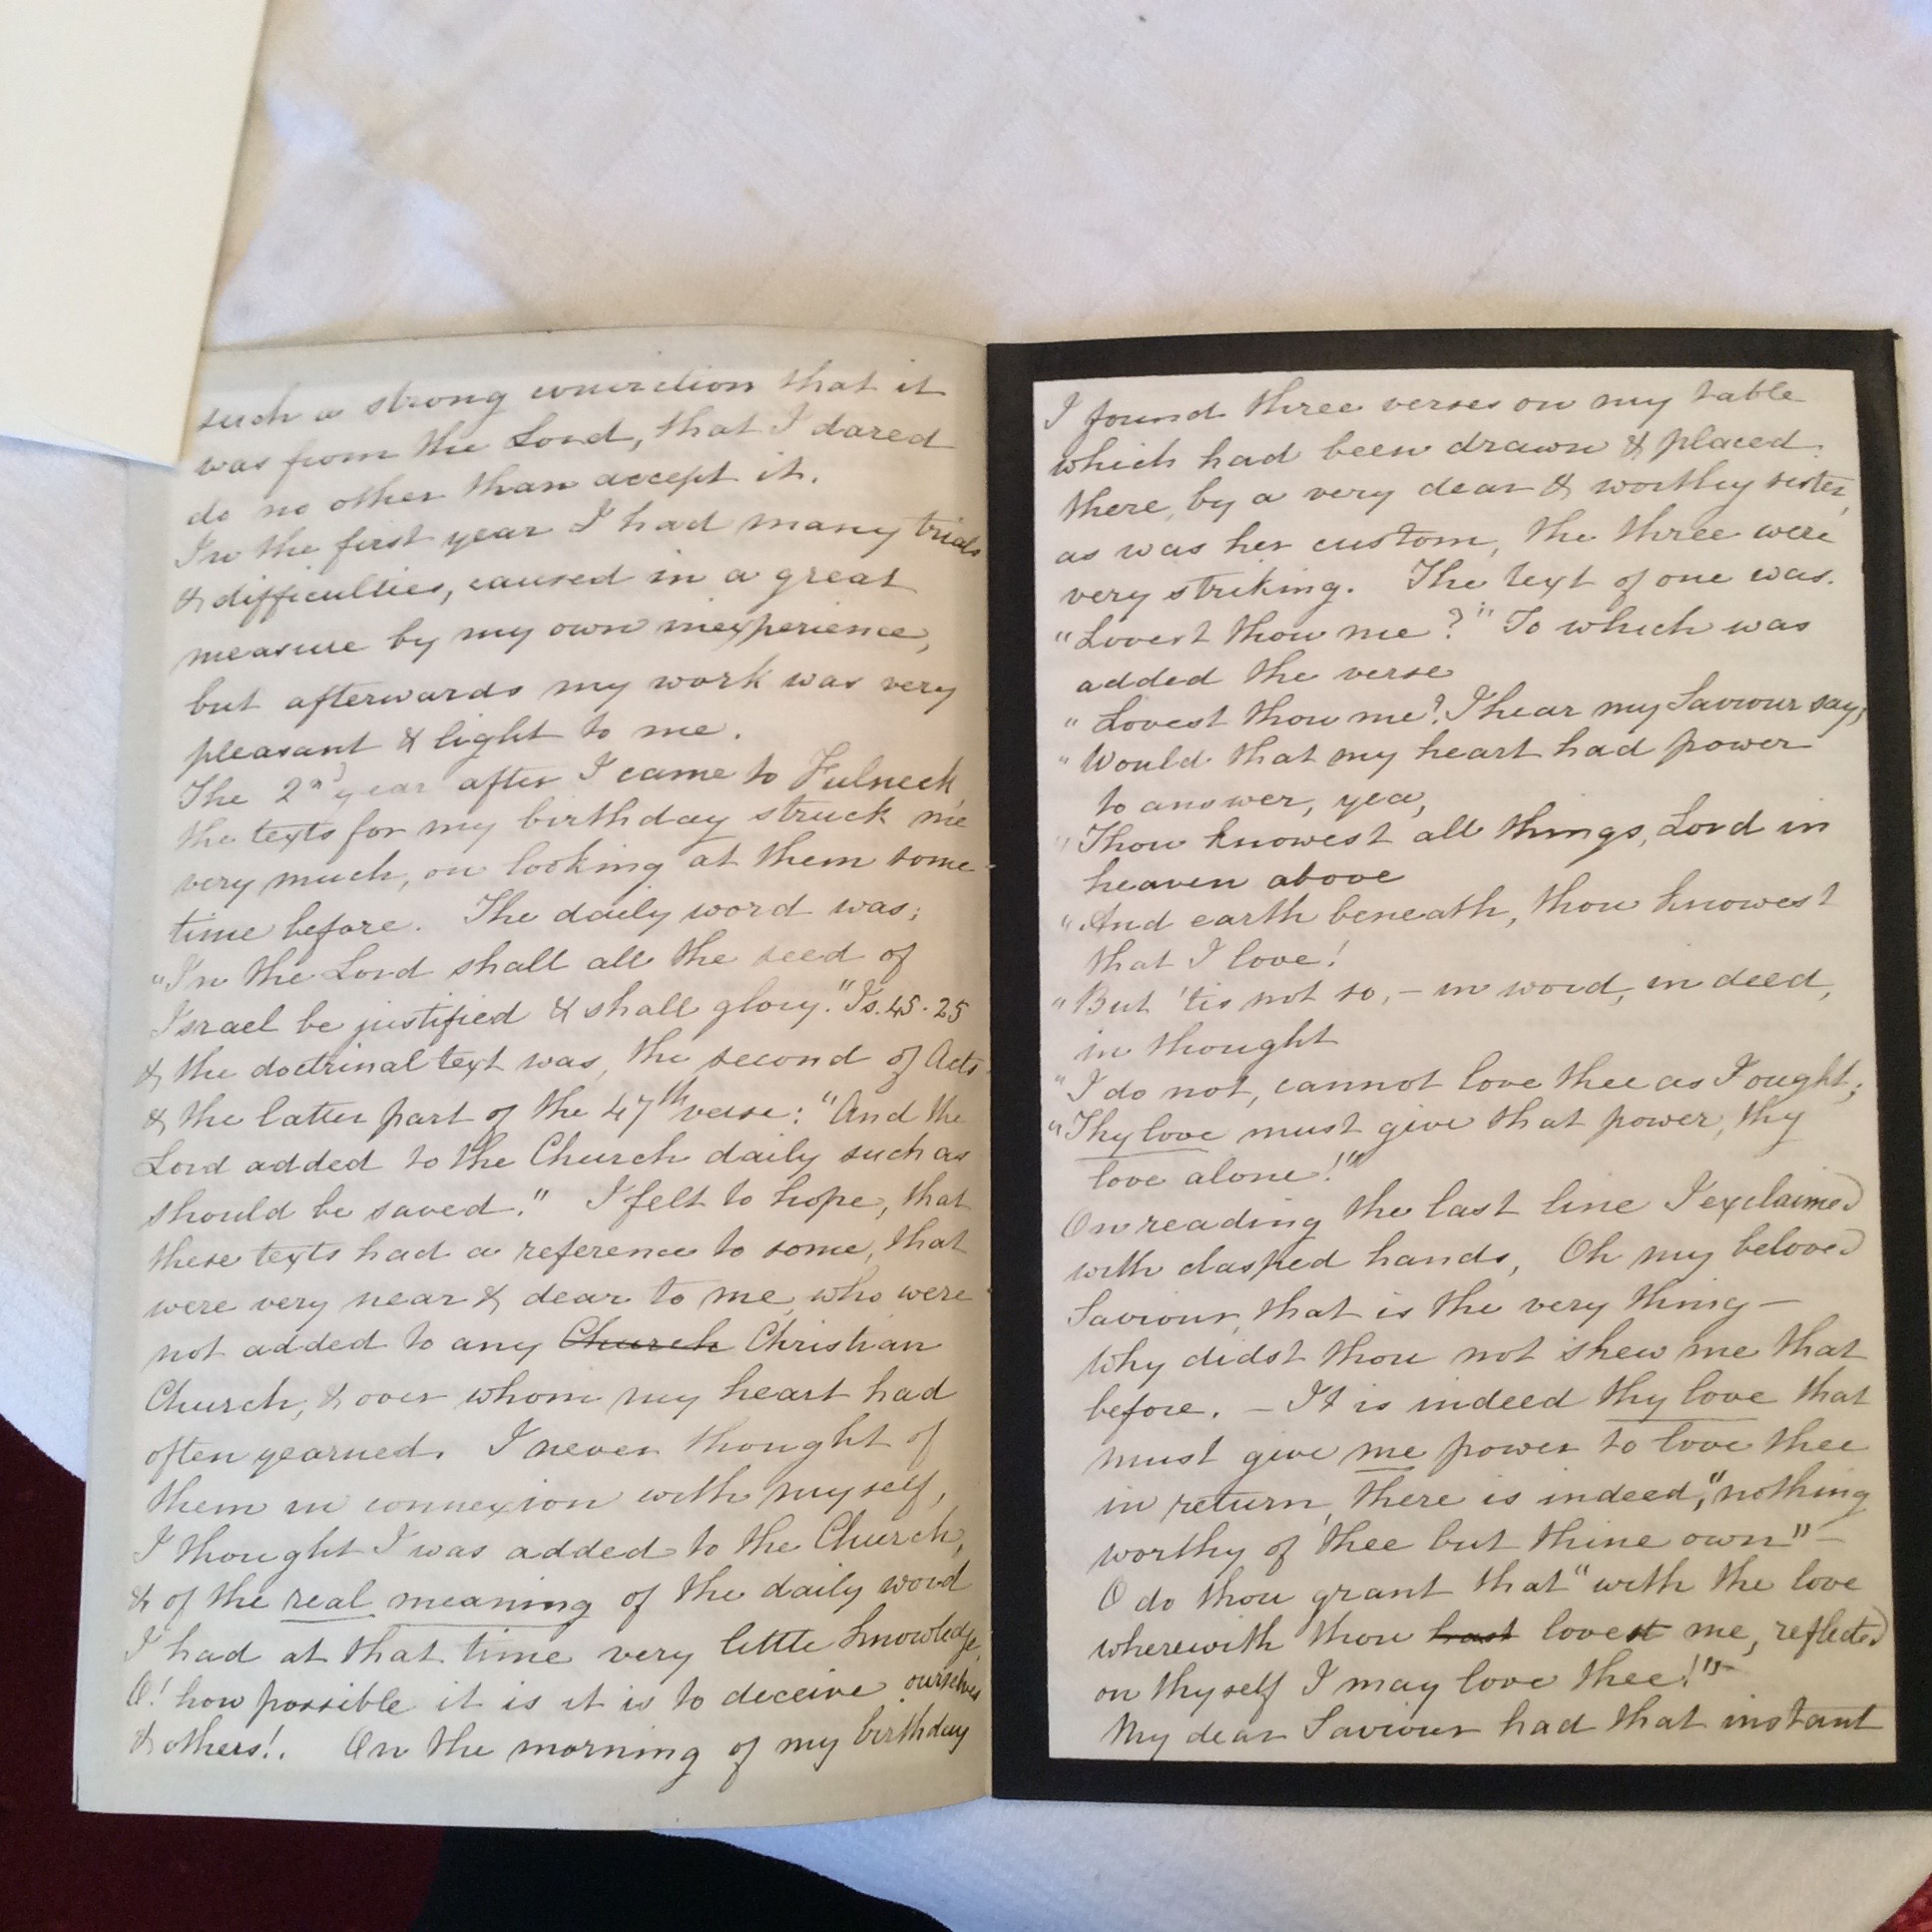 such a strong conviction that it
was from the Lord, that I dared
do no other than accept it.
In the first year I had many trials
& difficulties, caused in a great
measure by my own inexperience,
but afterwards my work was very
pleasant & light to me.
The 2nd year after I came to Fulneck,
the texts for my birthday struck me
very much, on looking at them some-
time before. The daily word was;
"In the Lord shall all the seed of
Israel be justified & shall glory." Is. 45. 25
& the doctrinal text was, the second of Acts
& the latter part of the 47th verse: "And the
Lord added to the Church daily such as
should be saved." I felt to hope, that
these texts had a reference to some, that
were very near & dear to me, who were
not added to any Church Christian
Church, & over whom my heart had
often yearned. I never thought of
them in connexion with myself,
I thought I was added to the Church,
& of the real meaning of the daily word
I had at that time very little knowledge.
O! how possible it is it is to deceive ourselves
& others!. On the morning of my birthday
I found three verses on my table
which had been drawn & placed
there, by a very dear & worthy sister,
as was her custom, the three were
very striking. The text of one was.
"Lovest thou me?" To which was
added the verse
"Lovest thou me? I hear my Saviour say;
"Would that my heart had power
to answer, yea,
"Thou knowest all things, Lord in
heaven above
"And earth beneath, thou knowest
that I love!
"But 'tis not so, – in word, in deed,
in thought
"I do not, cannot love thee as I ought;
"Thy love must give that power, thy
love alone!"
On reading the last line I exclaimed
with clasped hands, Oh my beloved
Saviour, that is the very thing –
Why didst thou not shew me that
before. – It is indeed thy love that
must give me power to love thee
in return, there is indeed, "nothing
worthy of thee but thine own" –
O do thou grant that "with the love
wherewith thou hast lovest me, reflected
on thyself I may love thee!" –
My dear Saviour had that instant